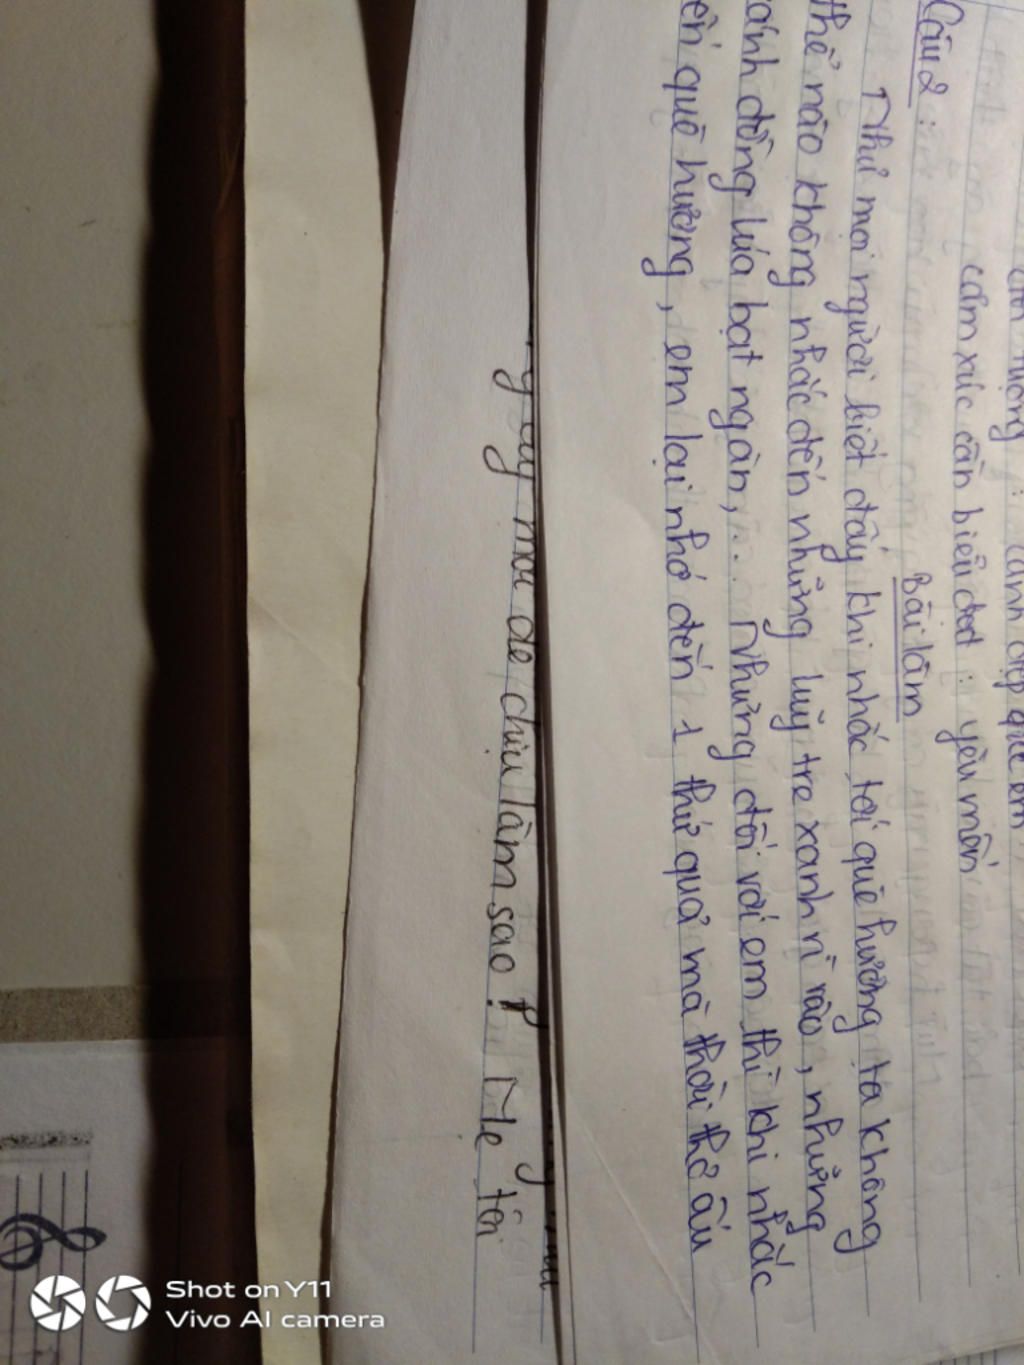 cảnh đẹp quê em
cảm xúc cần biểu đạt: yêu mến
Câu 2:
Bài làm
Như mọi người biết đấy khi nhắc tới quê hương ta không
thể nào không nhắc đến những luỹ tre xanh rì rào, những
cánh đồng lúa bạt ngàn,... Những đối với em thì khi nhắc
đến quê hương, em lại nhớ đến 1 thứ quả mà thời thơ ấu
mới dễ chịu làm sao! Mẹ tôi
Shot on Y11
Vivo AI camera